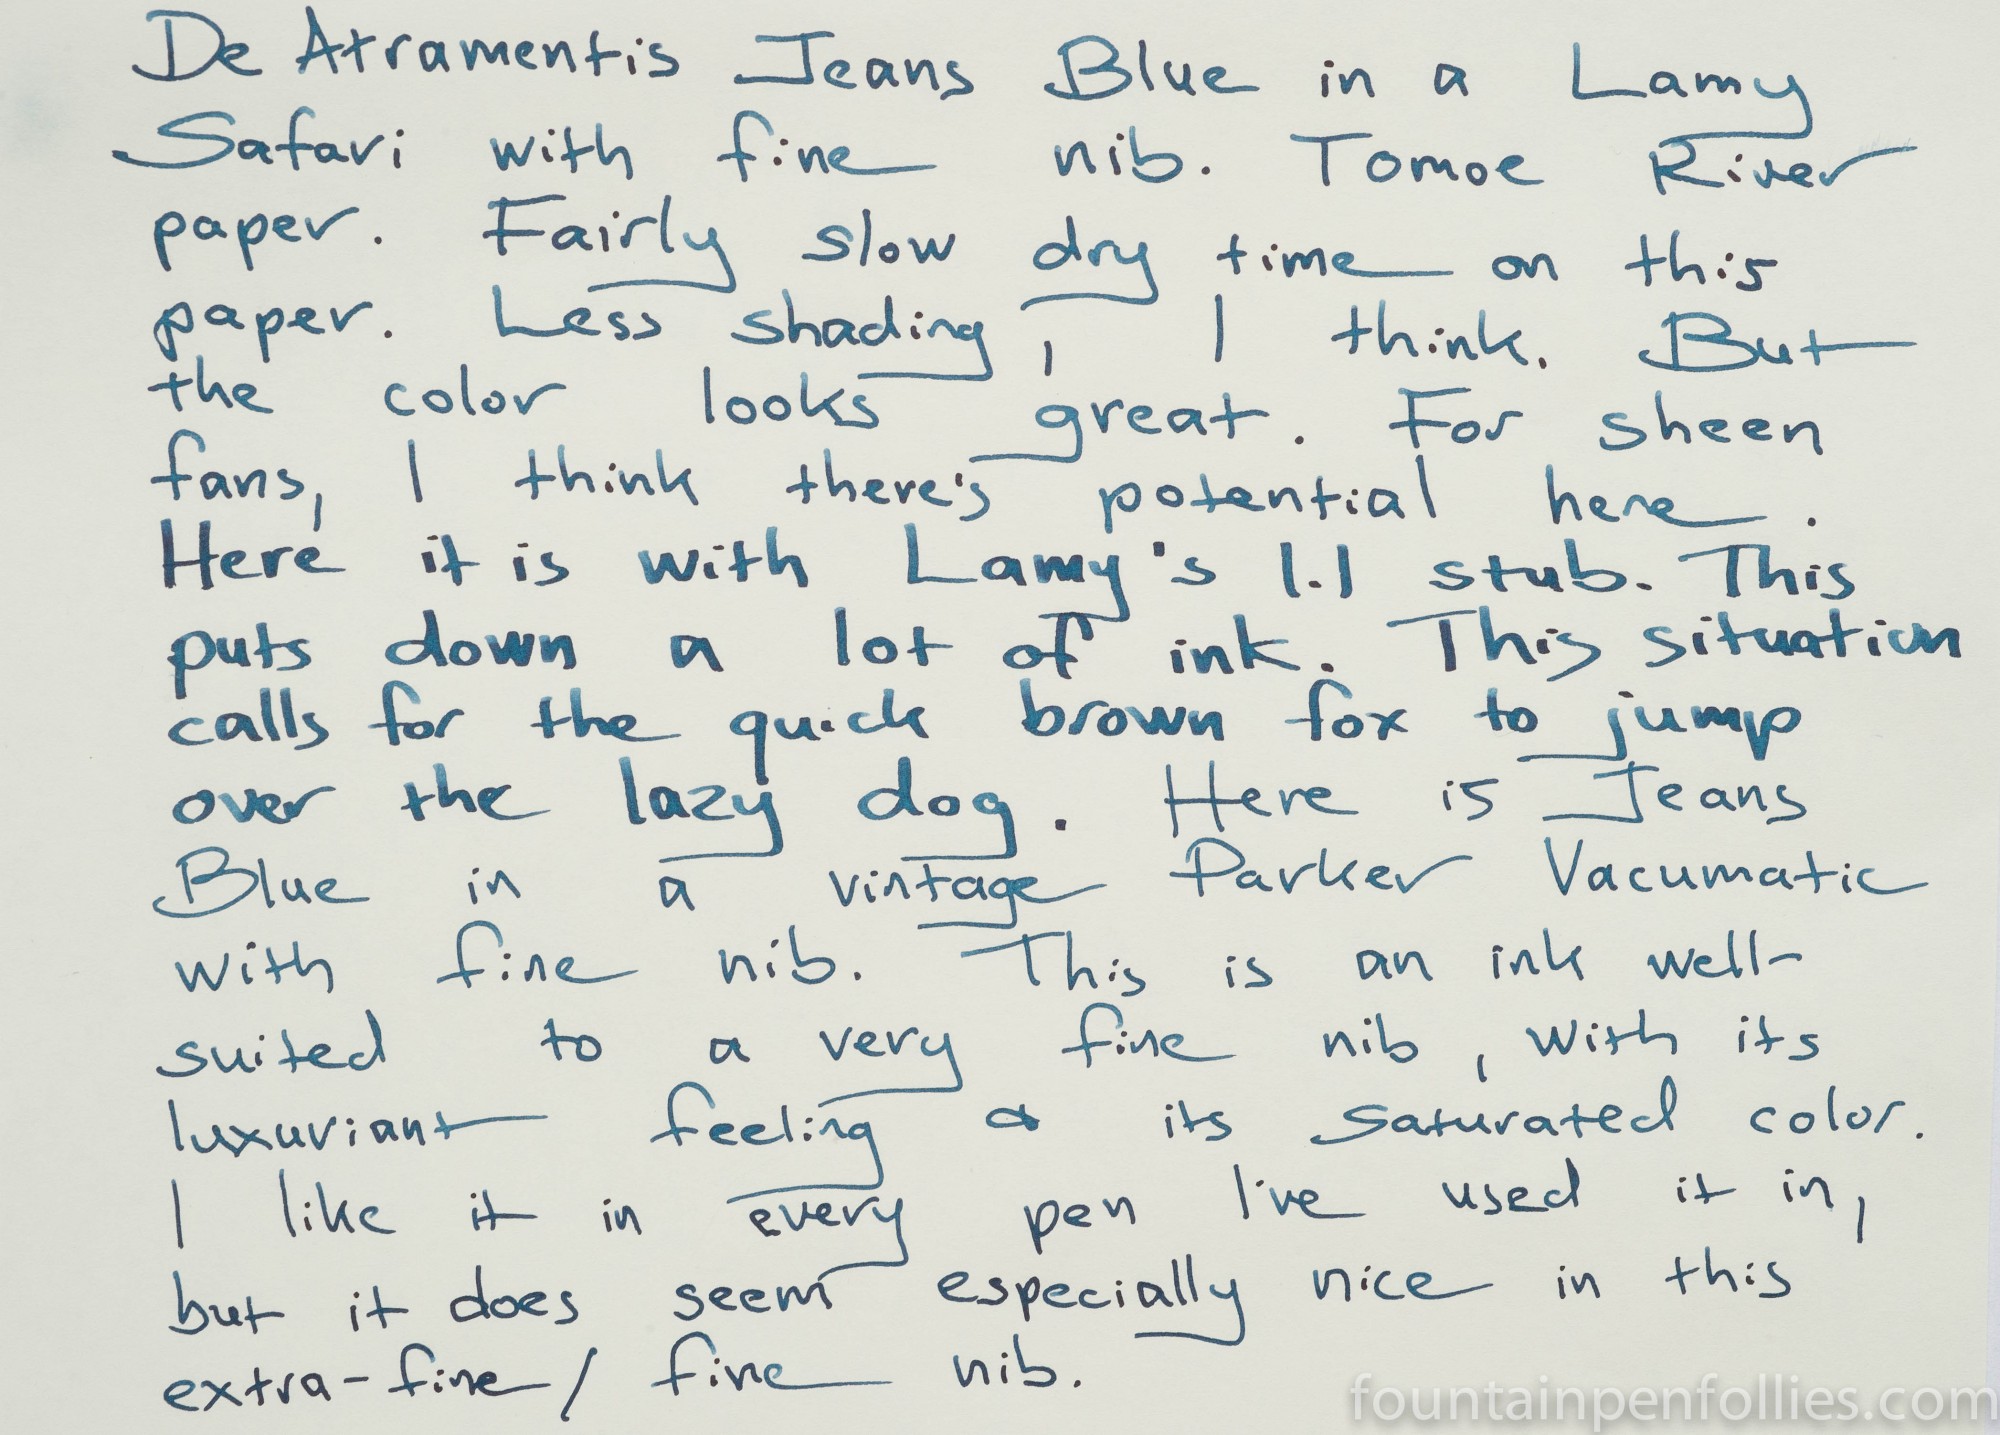 De Atramentis Jeans Blue in a Lamy
Safari with fine nib. Tomoe River
paper. Fairly slow dry time on this
paper. Less shading, I think. But
the color looks great. For sheen
fans, I think there's potential here.
Here it is with Lamy's 1.1 stub. This
puts down a lot of ink. This situation
calls for the quick brown fox to jump
over the lazy dog. Here is Jeans
Blue in a vintage Parker Vacumatic
with fine nib. This is an ink well-
suited to a very fine nib, with its
luxuriant feeling & its saturated color.
I like it in every pen I've used it in,
but it does seem especially nice in this
extra-fine/fine nib.
fountainpenfollies.com